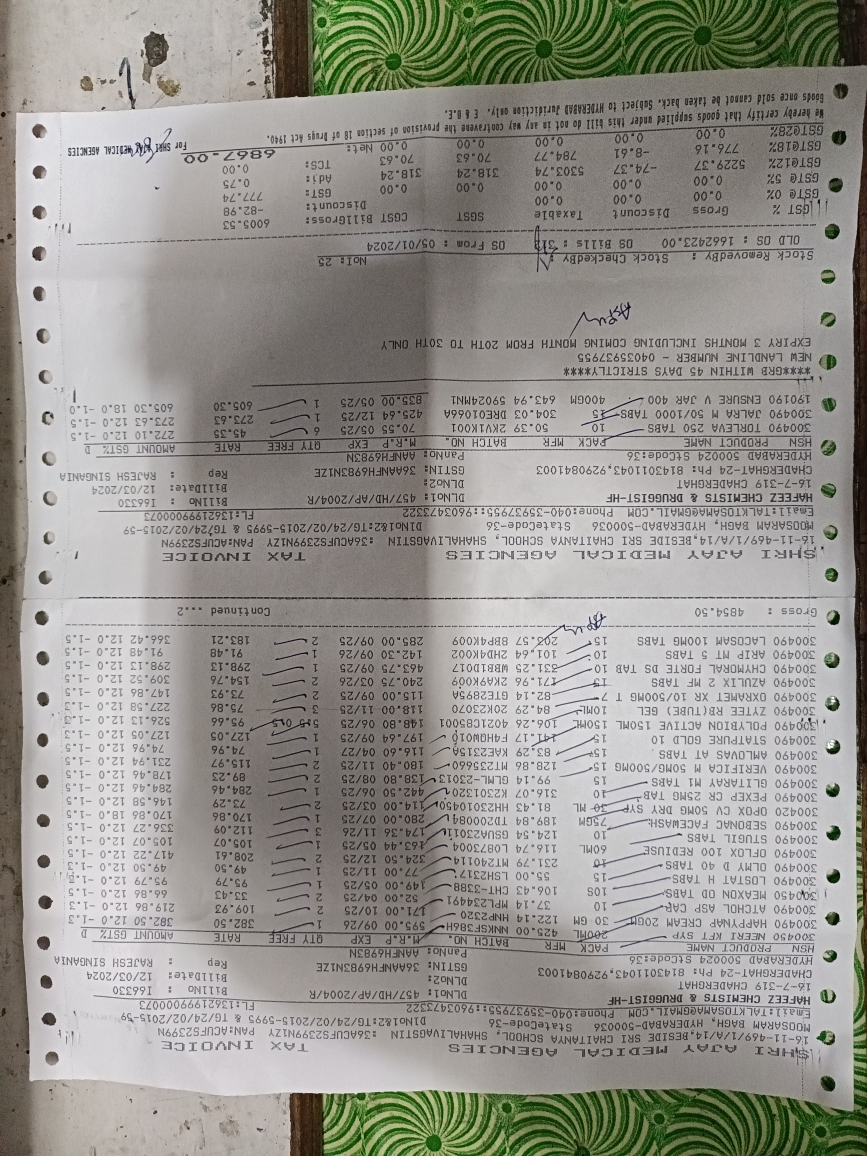 SHRI AJAY MEDICAL AGENCIES TAX INVOICE
16-11-469/1/A/14,BESIDE SRI CHAITANYA SCHOOL, SHAHALIVAGSTIN :36ACUFS2399N1ZY PAN:ACUFS2399N
MOOSARAM BAGH, HYDERABAD-500036 StateCode-36 DlNO1&2:TG/24/02/2015-5995 & TG/24/02/2015-59
Email:TALKTOSAMA@GMAIL.COM Phone:040-35937955::9603473322 FL:13621999000073
HAFEEZ CHEMISTS & DRUGGIST-HF DLNo1: 457/HD/AP/2004/R BillNo : I66330
16-7-319 CHADERGHAT DLNo2: BillDate: 12/03/2024
CHADERGHAT-24 Ph: 8143011043,9290841003 GSTIN: 36AANFH6983N1ZE Rep : RAJESH SINGANIA
HYDERABAD 500024 Stcode:36 PanNo: AANFH6983N
HSN PRODUCT NAME PACK MFR BATCH NO. M.R.P EXP QTY FREE RATE AMOUNT GST% D
300450 NEERI KFT SYP 200ML 425.00 595.00 09/26 1 382.50 382.50 12.0 -1.3
300490 HAPPYNAP CREAM 20GM 30 GM 122.14 HNP2320 171.00 10/25 2 109.93 219.86 12.0 -1.3
300490 ATCHOL ASP CAP 10 37.14 MPL223491 52.00 04/25 2 33.43 66.86 12.0 -1.5
300450 MEAXON OD TABS 10S 106.43 CHT-3388 149.00 05/25 1 95.79 95.79 12.0 -1.5
300490 LOSTAT H TABS 15 55.00 LSH2317 77.00 11/25 1 49.50 49.50 12.0 -1.3
300490 OLMY D 40 TABS 10 231.79 MT240114 324.50 12/25 2 208.61 417.22 12.0 -1.5
300490 OFLOX 100 REDIUSE 60ML 116.74 LO873004 163.44 05/25 1 105.07 105.07 12.0 -1.5
300490 STUGIL TABS 10 124.54 174.36 11/26 3 112.09 336.27 12.0 -1.5
300490 SEBONAC FACEWASH 75GM 189.84 TD20084 280.00 07/25 1 170.86 170.86 18.0 -1.5
300420 OPOX CV 50MG DRY SYP 30 ML 81.43 HH23010450 114.00 03/25 2 73.29 146.58 12.0 -1.5
300490 PEXEP CR 25MG TAB 10 316.07 K2301320 442.50 06/25 1 284.46 284.46 12.0 -1.5
300490 GLITARAY M1 TABS 15 99.14 GLML-23013 138.80 08/25 2 89.23 178.46 12.0 -1.5
300490 VERIFICA M 50MG/500MG 15 128.86 MT235660 180.40 11/25 2 115.97 231.94 12.0 -1.5
300490 AMLOVAS AT TABS 15 83.29 KAE2315A 116.60 04/27 1 74.96 74.96 12.0 -1.5
300490 STATPURE GOLD 10 15 141.17 197.64 09/25 1 127.05 127.05 12.0 -1.3
300490 POLYBION ACTIVE 150ML 150ML 106.26 402IC85001 148.80 06/25 95.66 526.13 12.0 -1.3
300490 ZYTEE RB(TUBE) GEL 10ML 84.29 20K23070 118.00 11/25 3 75.86 227.58 12.0 -1.3
300490 OXRAMET XR 10/500MG T 7 82.14 GTE2895A 115.00 09/25 2 73.93 147.86 12.0 -1.5
300490 AZULIX 2 MF TABS 15 171.96 2KA9K009 240.75 03/26 2 154.76 309.52 12.0 -1.5
300490 CHYMORAL FORTE DS TAB 10 331.25 WBB1D017 463.75 09/25 1 298.13 298.13 12.0 -1.5
300490 ARIP MT 5 TABS 10 101.64 2HD4K002 142.30 09/26 1 91.48 91.48 12.0 -1.5
300490 LACOSAM 100MG TABS 15 203.57 8BP4K009 285.00 09/25 2 183.21 366.42 12.0 -1.5
Gross : 4854.50 Continued ...2
SHRI AJAY MEDICAL AGENCIES TAX INVOICE
16-11-469/1/A/14,BESIDE SRI CHAITANYA SCHOOL, SHAHALIVAGSTIN :36ACUFS2399N1ZY PAN:ACUFS2399N
MOOSARAM BAGH, HYDERABAD-500036 StateCode-36 DlNO1&2:TG/24/02/2015-5995 & TG/24/02/2015-59
Email:TALKTOSAMA@GMAIL.COM Phone:040-35937955::9603473322 FL:13621999000073
HAFEEZ CHEMISTS & DRUGGIST-HF DLNo1: 457/HD/AP/2004/R BillNo : I66330
16-7-319 CHADERGHAT DLNo2: BillDate: 12/03/2024
CHADERGHAT-24 Ph: 8143011043,9290841003 GSTIN: 36AANFH6983N1ZE Rep : RAJESH SINGANIA
HYDERABAD 500024 Stcode:36 PanNo: AANFH6983N
HSN PRODUCT NAME PACK MFR BATCH NO. M.R.P EXP QTY FREE RATE AMOUNT GST% D
300490 TORLEVA 250 TABS 10 50.39 2KV1K001 70.55 05/25 6 45.35 272.10 12.0 -1.5
300490 JALRA M 50/1000 TABS 15 304.03 DRE01066A 425.64 12/25 1 273.63 273.63 12.0 -1.5
190190 ENSURE V JAR 400 400GM 643.94 59024MN1 835.00 05/25 1 605.30 605.30 18.0 -1.0
*****GRB WITHIN 45 DAYS STRICTLY*****
NEW LANDLINE NUMBER - 04035937955
EXPIRY 3 MONTHS INCLUDING COMING MONTH FROM 20TH TO 30TH ONLY
Stock RemovedBy : Stock CheckedBy : NoI: 25
OLD OS : 1662423.00 OS Bills : 313 OS From : 05/01/2024
GST % Gross Discount Taxable SGST CGST BillGross: 6005.53
GST@ 0% 0.00 0.00 0.00 0.00 0.00 Discount: -82.98
GST@ 5% 0.00 0.00 0.00 0.00 0.00 GST: 777.74
GST@12% 5229.37 -74.37 5303.74 318.24 318.24 Adj: 0.75
GST@18% 776.16 -8.61 784.77 70.63 70.63 TCS: 0.00
GST@28% 0.00 0.00 0.00 0.00 0.00 Net: 6867.00
We hereby certify that goods supplied under this bill do not in any way contravene the provision of section 18 of Drugs Act 1940. For SHRI AJAY MEDICAL AGENCIES
Goods once sold cannot be taken back. Subject to HYDERABAD Juridiction only. E & O.E.